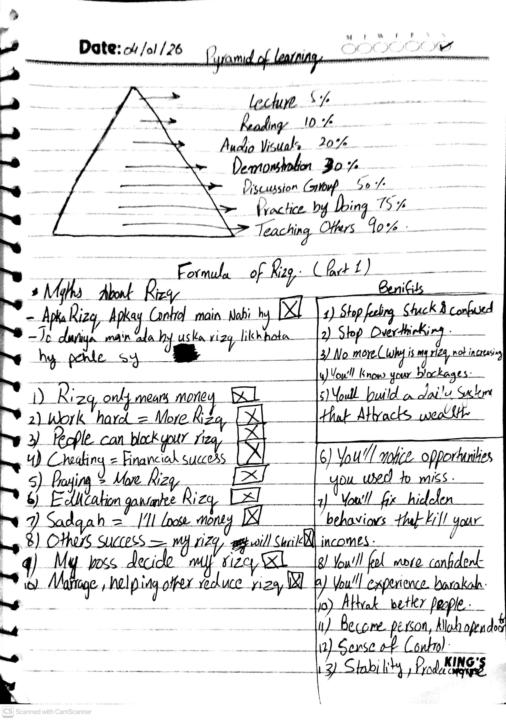 M T W T F S S
Date: 04/01/26
Pyramid of Learning
Lecture 5%
Reading 10%
Audio Visuals 20%
Demonstration 30%
Discussion Group 50%
Practice by Doing 75%
Teaching Others 90%
Formula of Rizq. (Part 1)
* Myths About Rizq
- Apka Rizq Apkay Control main Nahi hy
- Jo duniya main ata hy uska rizq likh hota
hy pehle sy
1) Rizq only means money
2) Work hard = More Rizq
3) People can block your rizq
4) Cheating = Financial success
5) Praying = More Rizq
6) Education gaurantee Rizq
7) Sadqah = I'll loose money
8) Others success = my rizq will Shrik
9) My boss decide my rizq
10) Marrage, helping other reduce rizq
Benifits
1) Stop feeling Stuck & confused
2) Stop Overthinking.
3) No more (Why is my rizq not increasing
4) You'll know your blockages.
5) You'll build a daily System
that Attracts wealth
6) You'll notice opportunities
you used to miss.
7) You'll fix hidden
behaviors that kill your
incomes.
8) You'll feel more confident
9) You'll experience barakah.
10) Attrat better people.
11) Become person, Allah open doors
12) Sense of Control.
13) Stability,
KING'S
CS Scanned with CamScanner